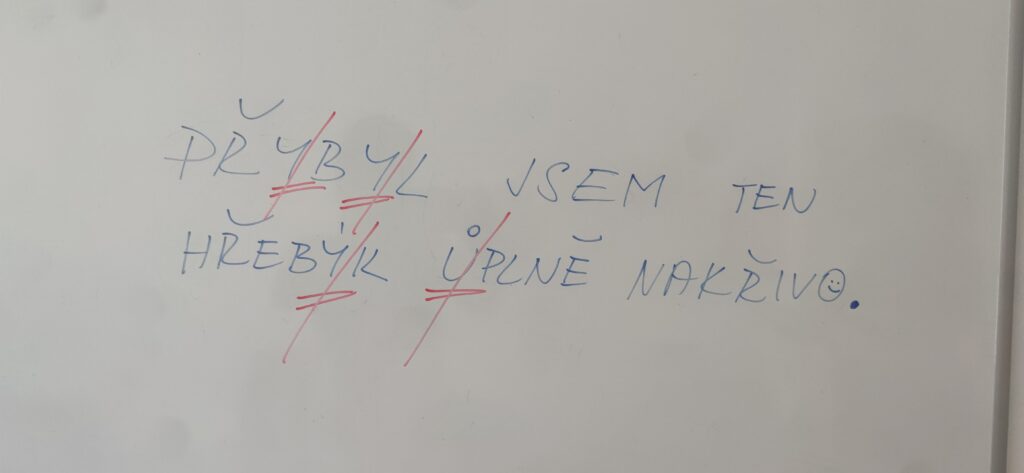 PŘYBYL JSEM TEN
HŘEBÝK ŮPLNĚ NAKŘIVO.